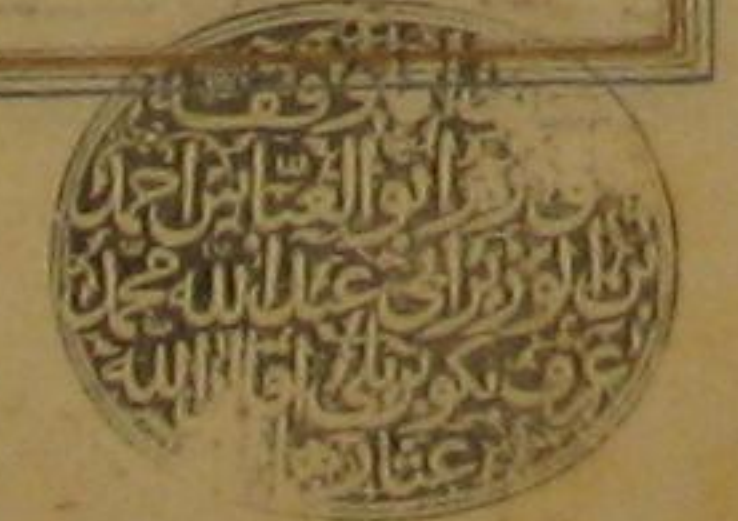 وقفه
الوزير ابو العباس احمد
بن الوزير ابي عبد الله محمد
عرف بكوبريلي اقال الله
عثارهما